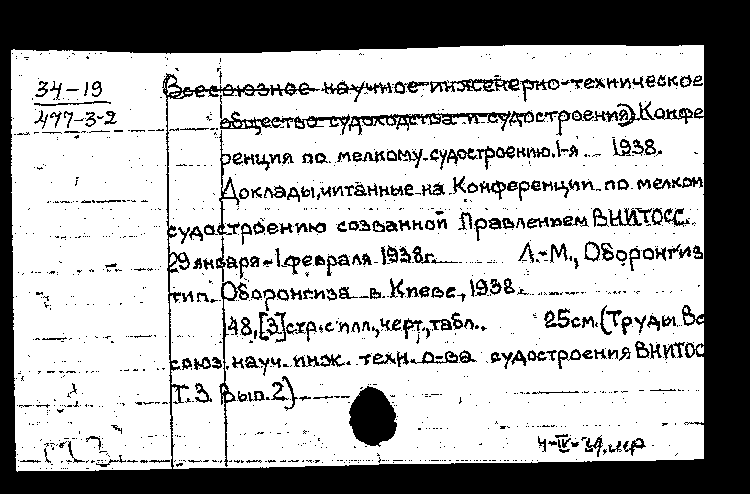 34-19
477-3-2
Всесоюзное научное инженерно-техническое
общество судоходства и судостроения) Конфе
ренция по мелкому судостроению. 1-я 1938.
Доклады, читанные на Конференции по мелком
судостроению созванной Правлением ВНИТОСС.
29 января-1 февраля 1938г. Л.-М., Оборонгиз
тип. Оборонгиза в Киеве, 1938.
48, [3] стр. с илл., черт., табл. 25см. (Труды Вс
союз. науч. инж. техн. о-ва судостроения ВНИТОС
Т. 3. Вып. 2)
4-IV-39